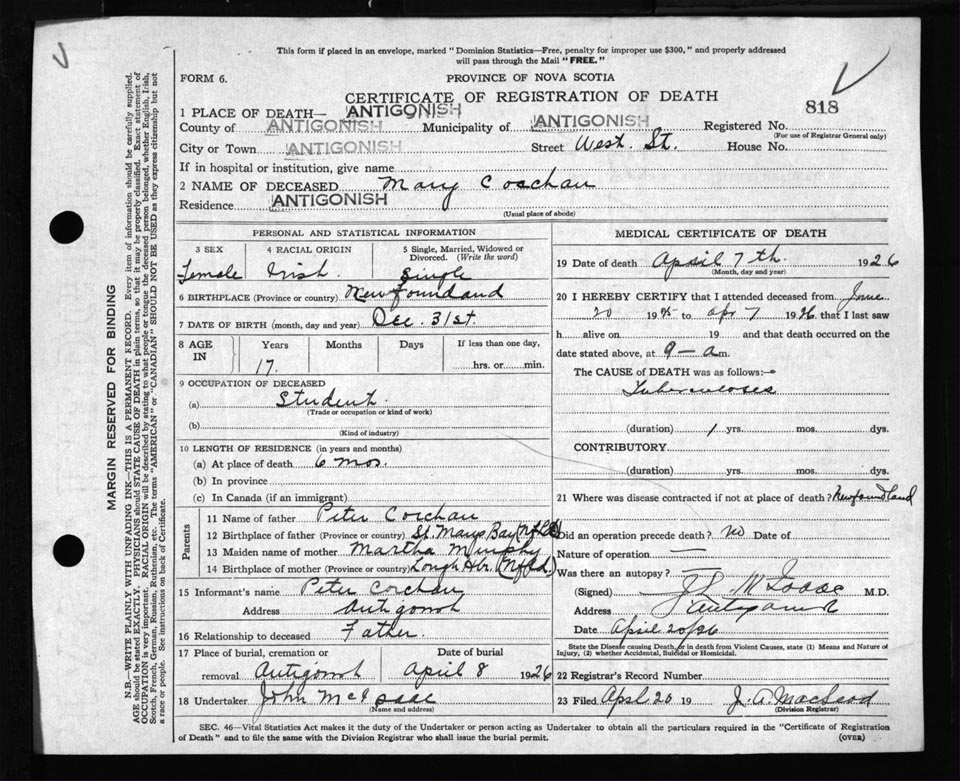 This form if placed in an envelope, marked "Dominion Statistics—Free, penalty for improper use $300," and properly addressed
will pass through the Mail "FREE."
FORM 6.
PROVINCE OF NOVA SCOTIA
CERTIFICATE OF REGISTRATION OF DEATH
818
1 PLACE OF DEATH— ANTIGONISH
County of ANTIGONISH Municipality of ANTIGONISH Registered No.
(For use of Registrar General only)
City or Town ANTIGONISH Street West. St. House No.
If in hospital or institution, give name
2 NAME OF DECEASED Mary Corchan
Residence ANTIGONISH
(Usual place of abode)
PERSONAL AND STATISTICAL INFORMATION
3 SEX 4 RACIAL ORIGIN 5 Single, Married, Widowed or
Divorced. (Write the word)
Female Irish. Single
6 BIRTHPLACE (Province or country) Newfoundand
7 DATE OF BIRTH (month, day and year) Dec. 31st.
8 AGE IN Years Months Days If less than one day,
17. hrs. or min.
9 OCCUPATION OF DECEASED
(a) Student.
(Trade or occupation or kind of work)
(b)
(Kind of industry)
10 LENGTH OF RESIDENCE (in years and months)
(a) At place of death 6 mos.
(b) In province
(c) In Canada (if an immigrant)
Parents
11 Name of father Peter Corchan
12 Birthplace of father (Province or country) St. Marys Bay (Nfld)
13 Maiden name of mother Martha Murphy
14 Birthplace of mother (Province or country) Hbr. (Nfld.)
15 Informant's name Peter Corchan
Address Antigonish
16 Relationship to deceased Father.
17 Place of burial, cremation or Date of burial
removal Antigonish April 8 1926
18 Undertaker John McIsaac
(Name and address)
MEDICAL CERTIFICATE OF DEATH
19 Date of death April 7th. 1926
(Month, day and year)
20 I HEREBY CERTIFY that I attended deceased from June
20 1925 to Apr 7 1926 that I last saw
h alive on 19 and that death occurred on the
date stated above, at 9 – a m.
The CAUSE of DEATH was as follows:—
Tuberculoses
(duration) 1 yrs. mos. dys.
CONTRIBUTORY
(duration) yrs. mos. dys.
21 Where was disease contracted if not at place of death? Newfoundland
Did an operation precede death? no Date of
Nature of operation —
Was there an autopsy? —
(Signed) McIsaac M.D.
Address Antigonish
Date April 20/26
State the Disease causing Death, or in death from Violent Causes, state (1) Means and Nature of
Injury, (2) whether Accidental, Suicidal or Homicidal.
22 Registrar's Record Number
23 Filed April 20 19 J. A. MacLeod
(Division Registrar)
SEC. 46—Vital Statistics Act makes it the duty of the Undertaker or person acting as Undertaker to obtain all the particulars required in the "Certificate of Registration
of Death" and to file the same with the Division Registrar who shall issue the burial permit.
(OVER)
MARGIN RESERVED FOR BINDING
N.B.—WRITE PLAINLY WITH UNFADING INK—THIS IS A PERMANENT RECORD. Every item of information should be carefully supplied.
AGE should be stated EXACTLY. PHYSICIANS should STATE CAUSE OF DEATH in plain terms, so that it may be properly classified. Exact statement of
OCCUPATION is very important. RACIAL ORIGIN will be described by stating to what people or tongue the deceased person belonged, whether English, Irish,
Scotch, French, German, Russian, Ruthenian, etc. The terms "AMERICAN" or "CANADIAN" SHOULD NOT BE USED as they express citizenship but not
a race or people. See instructions on back of Certificate.